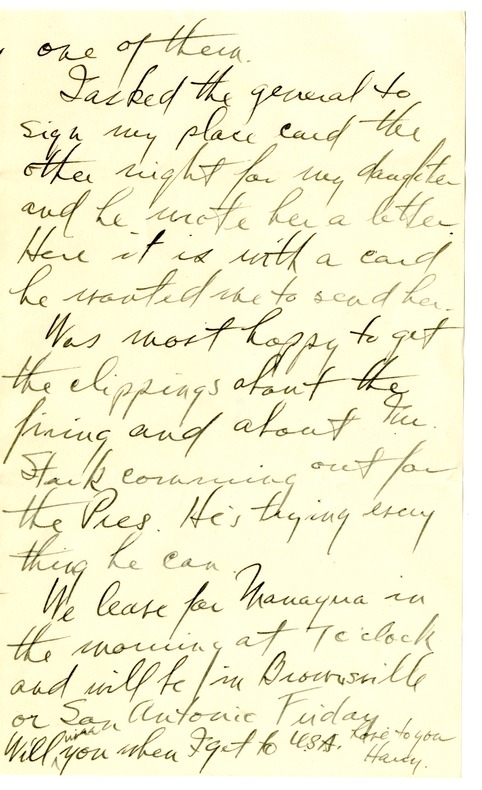 one of them.
I asked the general to
sign my place card the
other night for my daughter
and he wrote her a letter.
Here it is with a card
he wanted me to send her.
Was most happy to get
the clippings about the
firing and about
Stark comming out for
the Pres. He's trying every
thing he can.
We leave for Managua in
the morning at 7 o'clock
and will be in Brownsville
or San Antonio Friday
Will wire you when I get to U.S.A. Love to you
Harry.